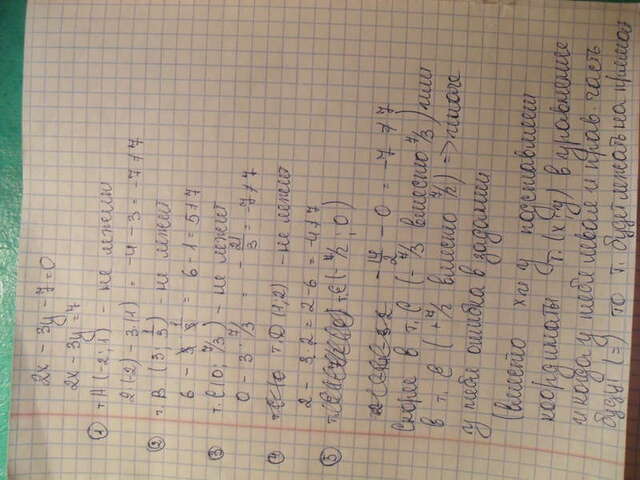 2x - 3y - 7 = 0
2x - 3y = 7
① т. A (-2; 1) - не лежит
2(-2) - 3·(1) = -4 - 3 = -7 ≠ 7
② т. B (3; 1/3) - не лежит
6 - 3·1/3 = 6 - 1 = 5 ≠ 7
③ т. C (0; 7/3) - не лежит
0 - 3·7/3 = -7 ≠ 7
④ т. D (1; 2) - не лежит
2 - 3·2 = 2 - 6 = -4 ≠ 7
⑤ т. E (-7/2; 0)
-14/2 - 0 = -7 ≠ 7
Скорее в т. C (-7/3 вместо 7/3) или
в т. E (+7/2 вместо 7/2) => иначе
у тебя ошибка в задании
(вместо x и y подставляем
координаты т. (x и y) в уравнение
и когда у тебя левая и прав. часть
будут (=) то т. будет лежать на прямой